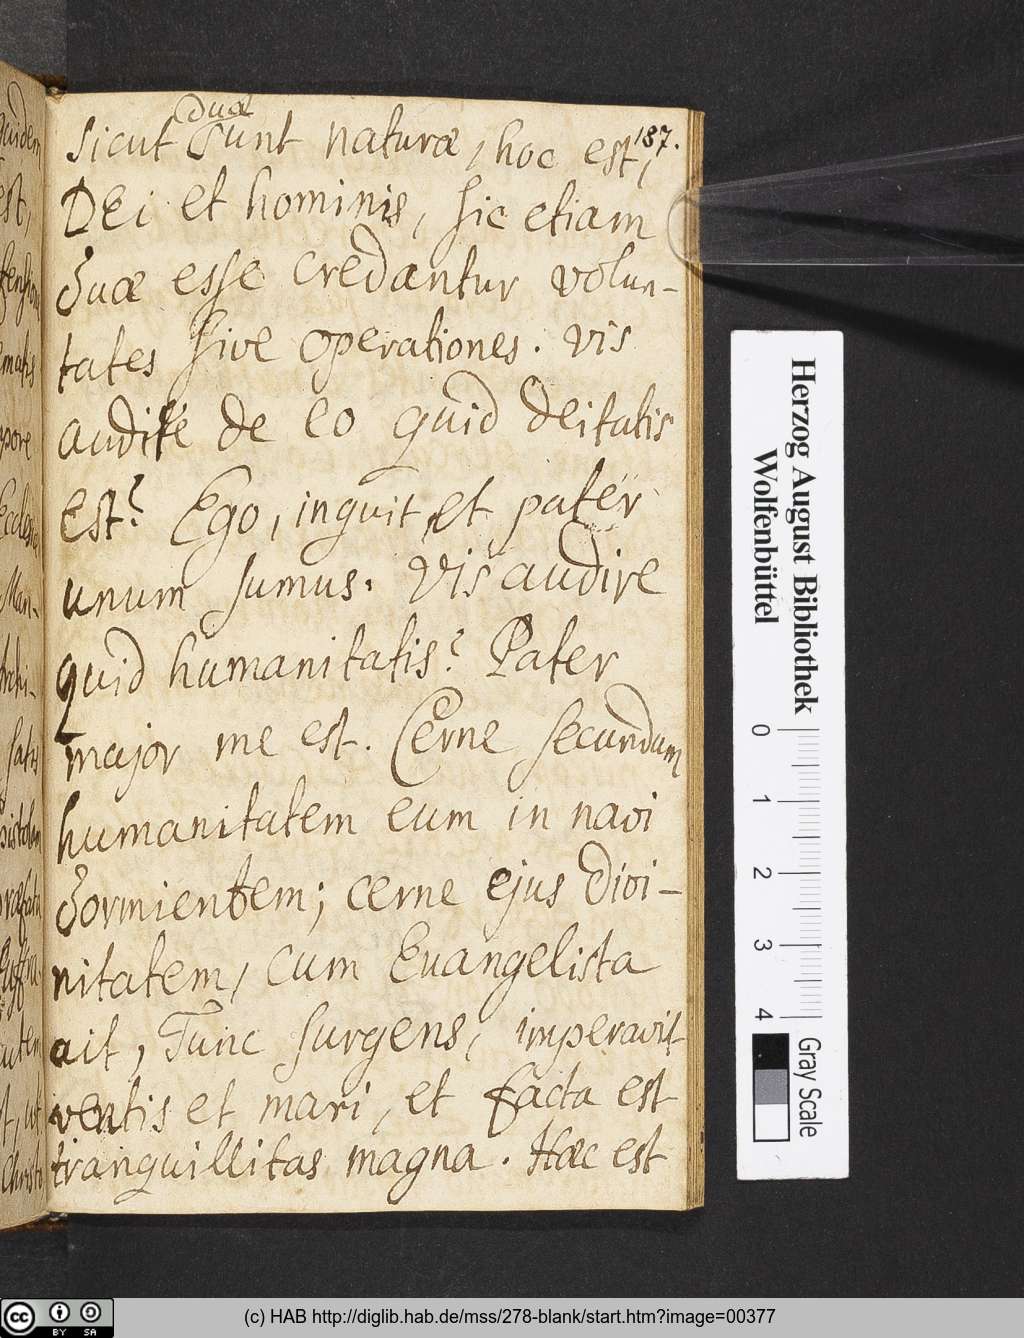 187.
duæ
sicut sunt naturæ, hoc est,
DEi et hominis, sic etiam
duæ esse credantur volun-
tates sive operationes. vis
audire de eo quid deitatis
est? Ego, inquit, et pater
unum sumus. Vis audire
quid humanitatis? Pater
major me est. Cerne secundum
humanitatem eum in navi
dormientem; cerne ejus divi-
nitatem, cum Evangelista
ait, Tunc surgens, imperavit
ventis et mari, et facta est
tranquillitas magna. Hæc est
Herzog August Bibliothek
Wolfenbüttel
0 1 2 3 4
Gray Scale
cc BY SA
(c) HAB http://diglib.hab.de/mss/278-blank/start.htm?image=00377